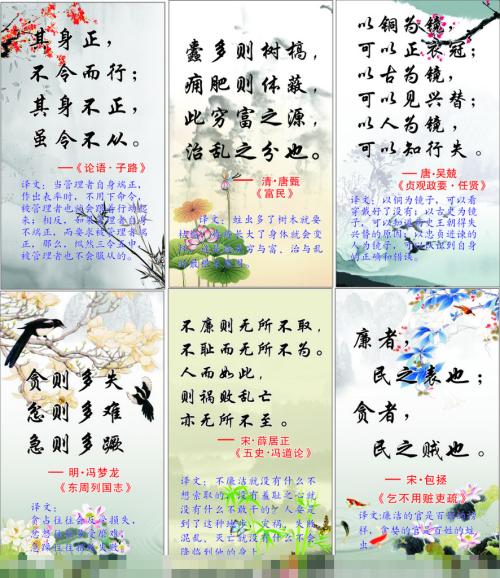 其身正，
不令而行；
其身不正，
虽令不从。
——《论语·子路》
译文：当管理者自身端正，
作出表率时，不用下命令，
被管理者也就会跟着行动起
来；相反，如果管理者自身
不端正，而要求被管理者端
正，那么，纵然三令五申，
被管理者也不会服从的。
蠹多则树槁，
痈肥则体蔽，
此穷富之源，
治乱之分也。
—— 清·唐甄
《富民》
译文：蛀虫多了树木就要
长大了身体就会变
穷与富、治与乱
以铜为镜，
可以正衣冠；
以古为镜，
可以见兴替；
以人为镜，
可以知行失。
—— 唐·吴兢
《贞观政要·任贤》
译文：以铜为镜子，可以看
穿戴好了没有；以古史为镜
子，可以知道历史王朝得失
兴替的原因；以忠贞进谏的
人为镜子，可以认识到自身
的正确和错误。
贪则多失
忿则多难
急则多蹶
—— 明·冯梦龙
《东周列国志》
译文：
贪占往往会反受损失，
不廉则无所不取，
不耻而无所不为。
人而如此，
则祸败乱亡
亦无所不至。
—— 宋·薛居正
《五史·冯道论》
译文：不廉洁就没有什么不
想索取的，没有羞耻之心就
没有什么不敢干的。人要是
到了这种地步，灾祸，失败
混乱，灭亡就没有什么不会
降临到他的身上
廉者，
民之表也；
贪者，
民之贼也。
—— 宋·包拯
《乞不用赃吏疏》
译文：廉洁的官是百姓的榜
样，贪婪的官是百姓的蛀
虫